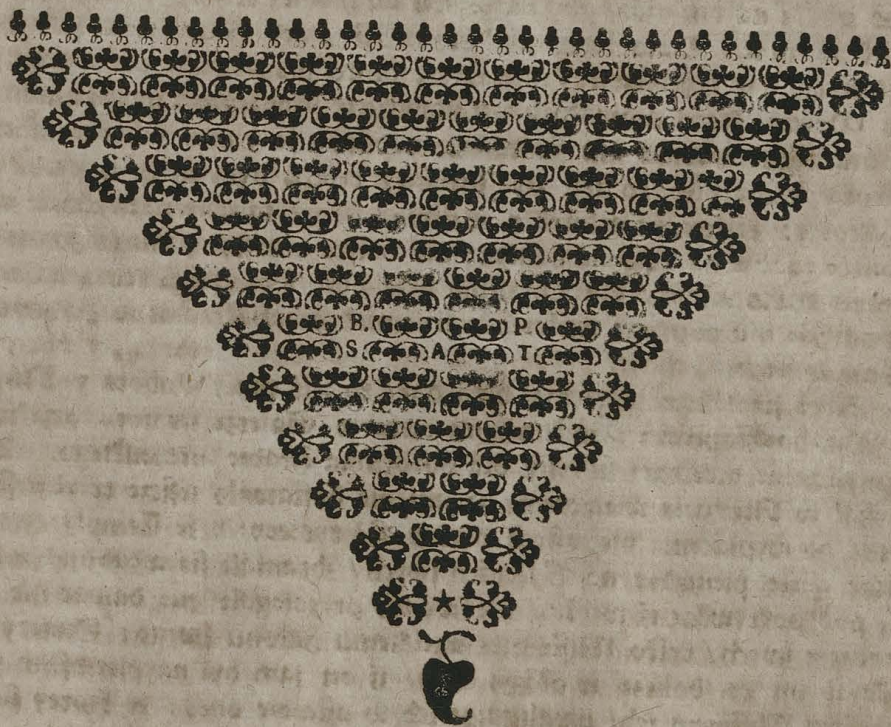 B. P.
S A T